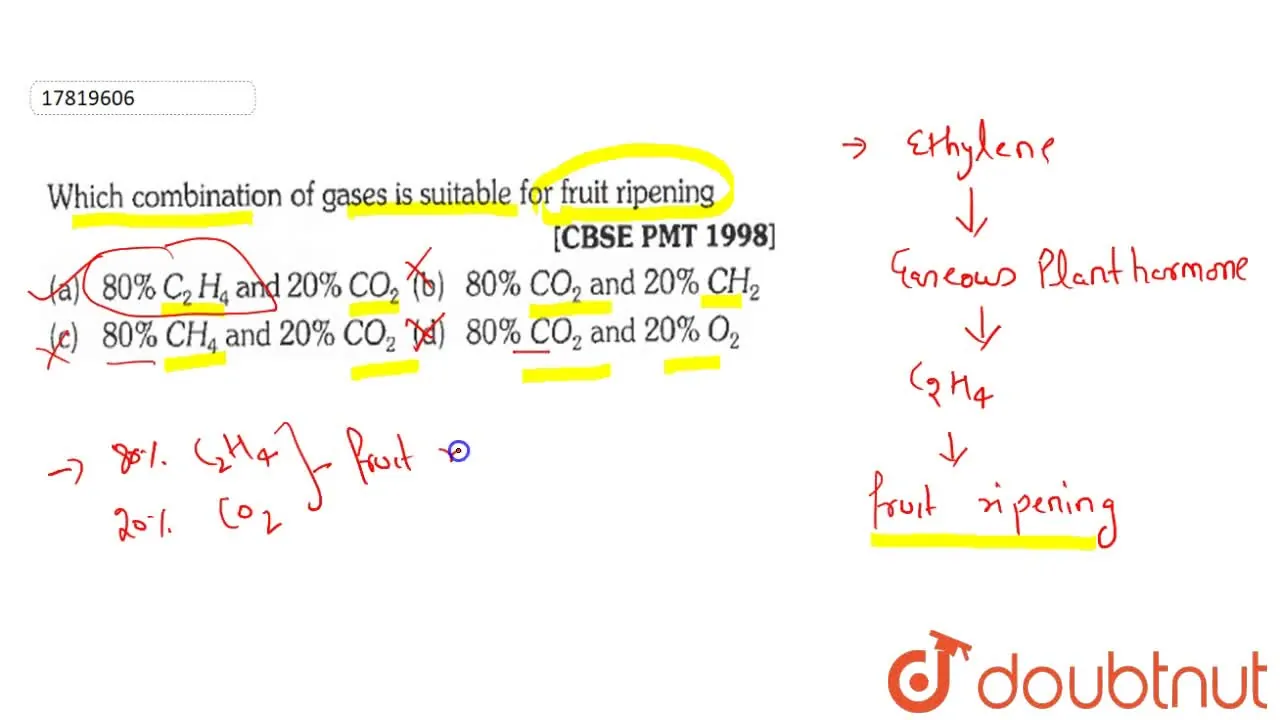 17819606
Which combination of gases is suitable for fruit ripening
[CBSE PMT 1998]
(a) 80% C₂H₄ and 20% CO₂ (b) 80% CO₂ and 20% CH₂
(c) 80% CH₄ and 20% CO₂ (d) 80% CO₂ and 20% O₂
→ 80% C₂H₄ } fruit r
20% CO₂
→ Ethylene
↓
Ganeous Plant harmone
↓
C₂H₄
↓
fruit ripening
doubtnut